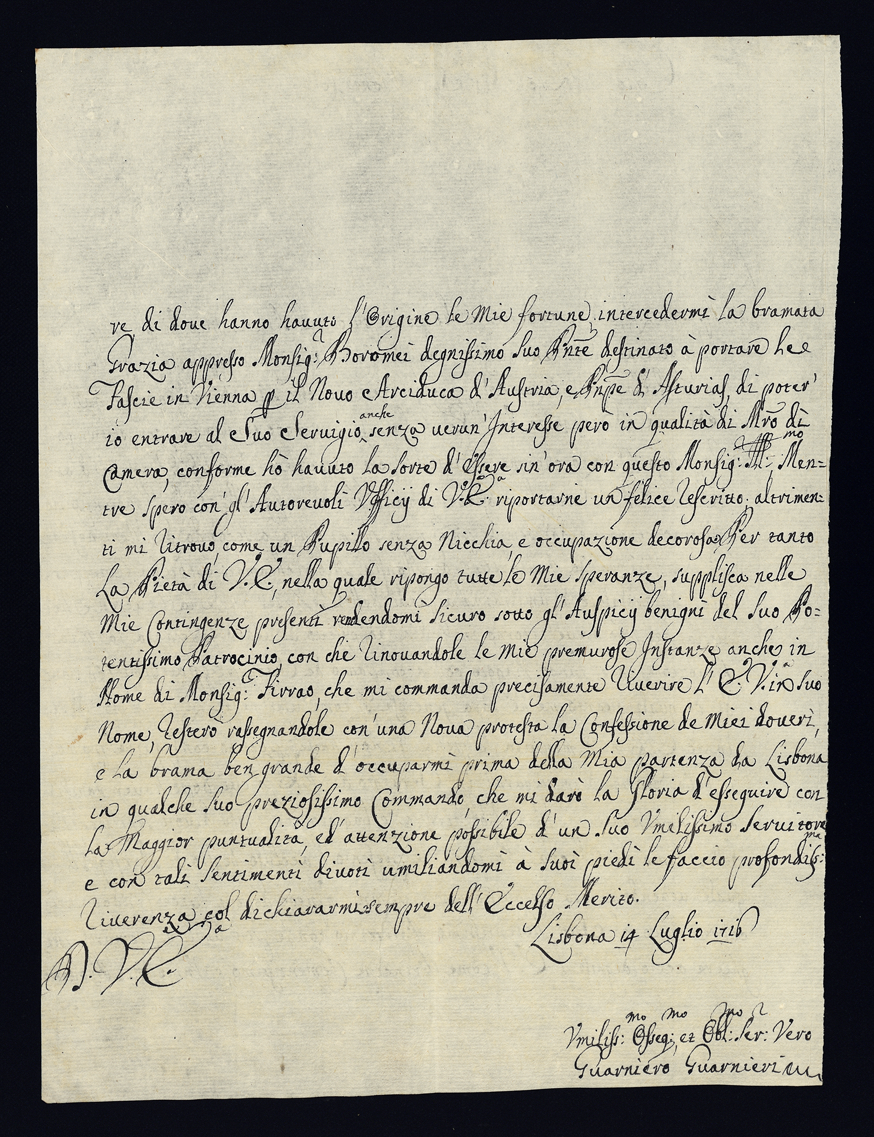 re di dove hanno havuto l'Origine le Mie fortune intercedermi la bramata
Grazia appresso Monsig.r Boromei degnissimo suo destinato à portare le
Fascie in Vienna p il Novo Arciduca d'Austria, e Pnpe d'Asturias, di poter'
io entrare al Suo Servigio anche senza verun' Interesse però in qualità di Mro di
Camera, conforme hò havuto la sorte d'Essere sin'ora con questo Monsig.r Ill:mo Men=
tre spero con gl'Autorevoli Vfficij di V.E.a riportarne un felice rescritto; altrimen=
ti mi ritrovo come un Pupillo senza Nicchia, e occupazione decorosa. Per tanto
La Pietà di V.E., nella quale ripongo tutte le Mie speranze, supplisca nelle
Mie Contingenze presenti rendendomi sicuro sotto gl'Auspicij benigni del suo Po=
tentissimo Patrocinio, con che rinovandole le Mie premurose Instanze anche in
Nome di Monsig.r Firrao, che mi commanda precisamente riverire l'E.V. in suo
Nome, resterò rassegnandole con'una Nova protesta la Confessione de Miei doveri,
e la brama ben grande d'occuparmi prima della Mia partenza da Lisbona
in qualche suo preziosissimo Commando, che mi darà la Gloria d'esseguire con
la Maggior puntualità, ed'attenzione possibile d'un suo Vmilissimo Servitore
e con tali sentimenti divoti umiliandomi à suoi piedi le faccio profondiss:ma
riverenza col dichiararmi sempre dell'Eccelso Merito.
Lisbona 14 Luglio 1716
D. V.E.a
Vmiliss:mo Osseq:mo et Obl:mo Ser:r Vero
Guarniero Guarnieri